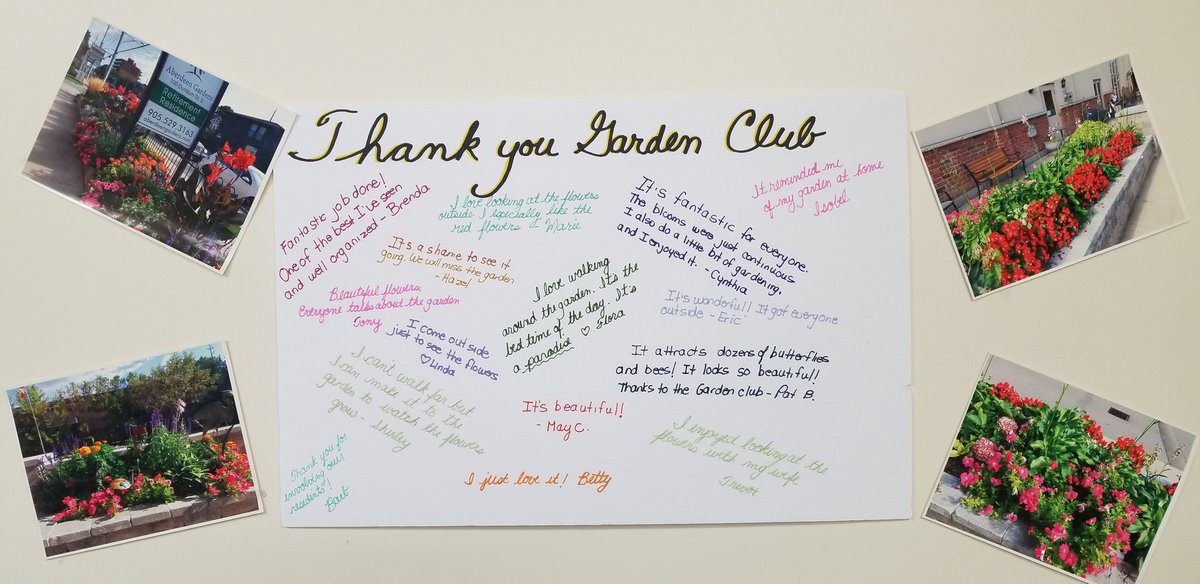 Aberdeen Gardens
Retirement
Residence
905.529.3163
aberdeengardens.com
Thank you Garden Club
Fantastic job done!
One of the best I've seen
and well organized - Brenda
I love looking at the flowers
outside. I especially like the
red flowers Marie
It's fantastic for everyone.
The blooms were just continuous
I also do a little bit of gardening,
and I enjoyed it. - Cynthia
It reminded me
of my garden at home
Isobel
It's a shame to see it
going. We will miss the garden
- Hazel
Beautiful flowers.
Everyone talks about the garden
Tony
I come outside
just to see the flowers
♡ Linda
I love walking
around the garden. It's the
bed time of the day. It's
a paradise ♡ Flora
It's wonderful! It got everyone
outside - Eric
It attracts dozens of butterflies
and bees! It looks so beautiful!
Thanks to the Garden club - Pat B.
I can't walk far but
I can make it to the
garden to watch the flowers
grow - Shirley
It's beautiful!
- May C.
I enjoyed looking at the
flowers with my wife
Trevor
Thank you for
involving our
residents!
Barb
I just love it! Betty